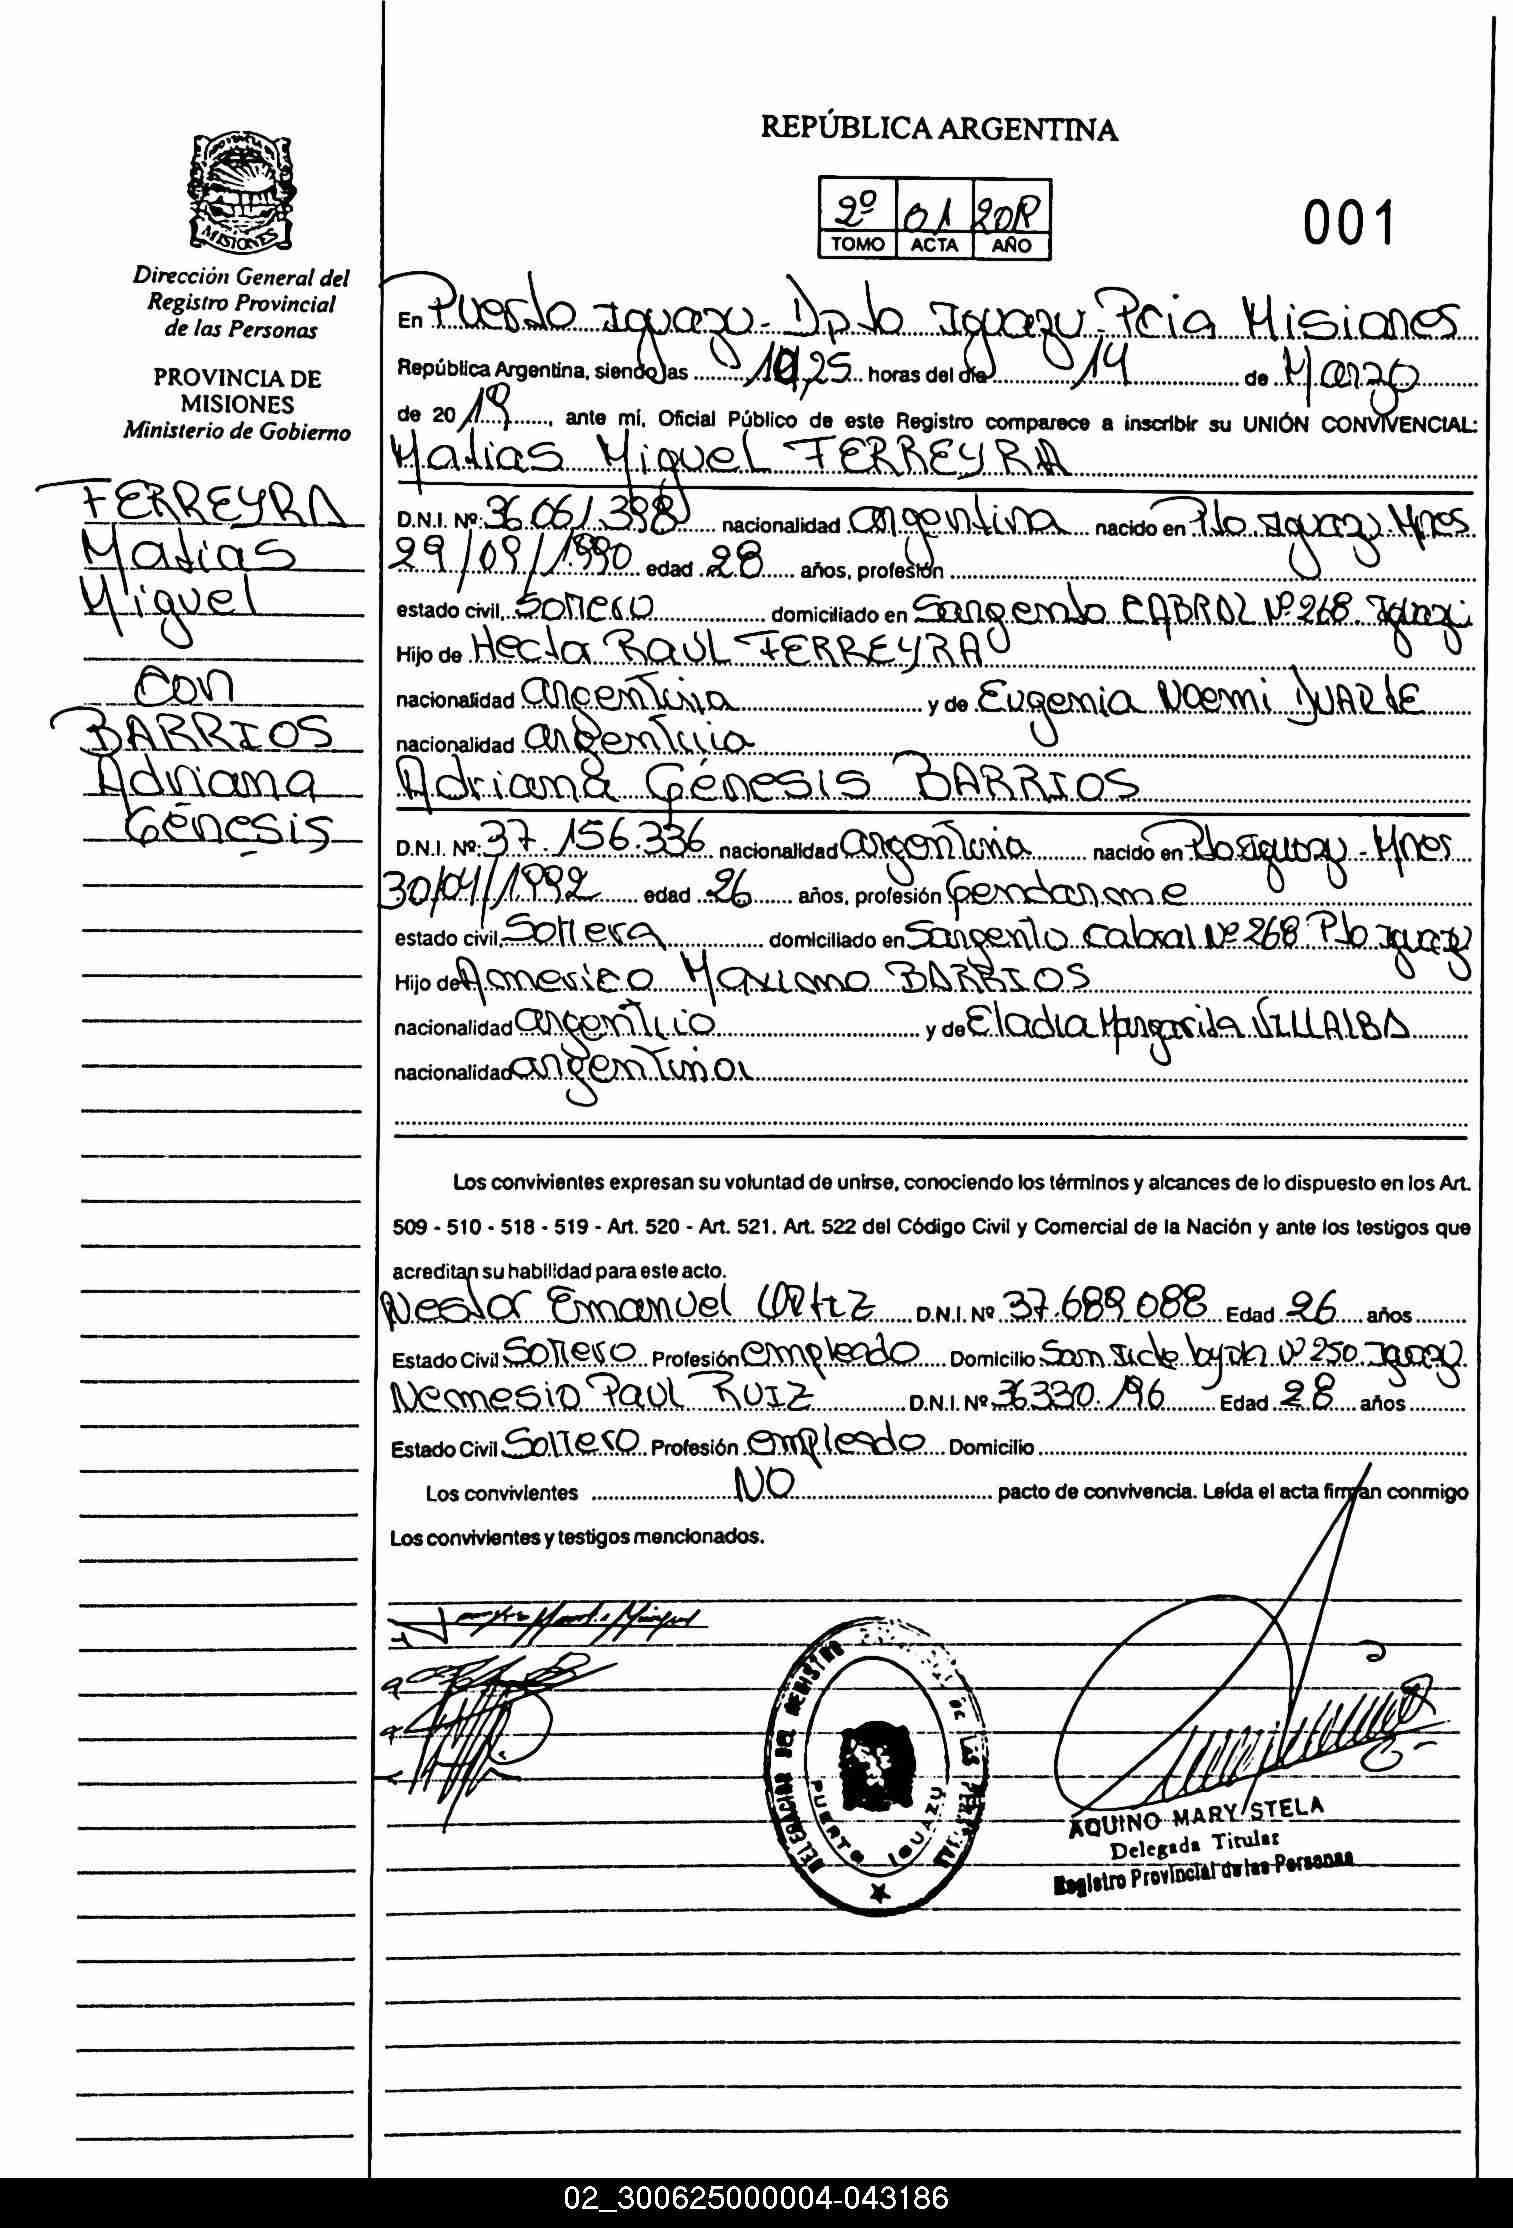 REPÚBLICA ARGENTINA
2º 01
TOMO ACTA AÑO
001
MISIONES
Dirección General del
Registro Provincial
de las Personas
PROVINCIA DE
MISIONES
Ministerio de Gobierno
FERREYRA
Matias
Miguel
con
BARRIOS
Adriana
Génesis
En Puerto Iguazu - Dpto Iguazu - Pcia Misiones
República Argentina, siendo las horas del día 14 de Marzo
de 20 19, ante mí, Oficial Público de este Registro comparece a inscribir su UNIÓN CONVIVENCIAL:
Matias Miguel FERREYRA
D.N.I. Nº: 36.061.398 nacionalidad argentina nacido en Pto. Iguazu. Mnes
29/09/1990 edad 28 años, profesión
estado civil, Soltero domiciliado en Sargento CABRAL Nº 268. Iguazu
Hijo de Hector RAUL FERREYRA
nacionalidad argentina y de Eugenia Noemi DUARTE
nacionalidad argentina
Adriana Génesis BARRIOS
D.N.I. Nº: 37.156.336 nacionalidad argentina nacido en Pto Iguazu - Mnes
30/04/1992 edad 26 años, profesión Gendarme
estado civil, Soltera domiciliado en Sargento Cabral Nº 268 Pto Iguazu
Hijo de Americo Maximo BARRIOS
nacionalidad argentino y de Eladia Margarita VILLALBA
nacionalidad argentina
Los convivientes expresan su voluntad de unirse, conociendo los términos y alcances de lo dispuesto en los Art.
509 - 510 - 518 - 519 - Art. 520 - Art. 521. Art. 522 del Código Civil y Comercial de la Nación y ante los testigos que
acreditan su habilidad para este acto.
Nestor Emanuel ORtiZ D.N.I. Nº 37.689.088 Edad 26 años
Estado Civil Soltero Profesión empleado Domicilio Nº 250. Iguazu
Nemesio Paul RUIZ D.N.I. Nº 36.330.196 Edad 28 años
Estado Civil Soltero Profesión empleado Domicilio
Los convivientes NO pacto de convivencia. Leída el acta firman conmigo
Los convivientes y testigos mencionados.
DELEGACION DEL REGISTRO DE LAS PERSONAS
PUERTO IGUAZU
AQUINO MARY STELA
Delegada Titular
Registro Provincial de las Personas
02_300625000004-043186